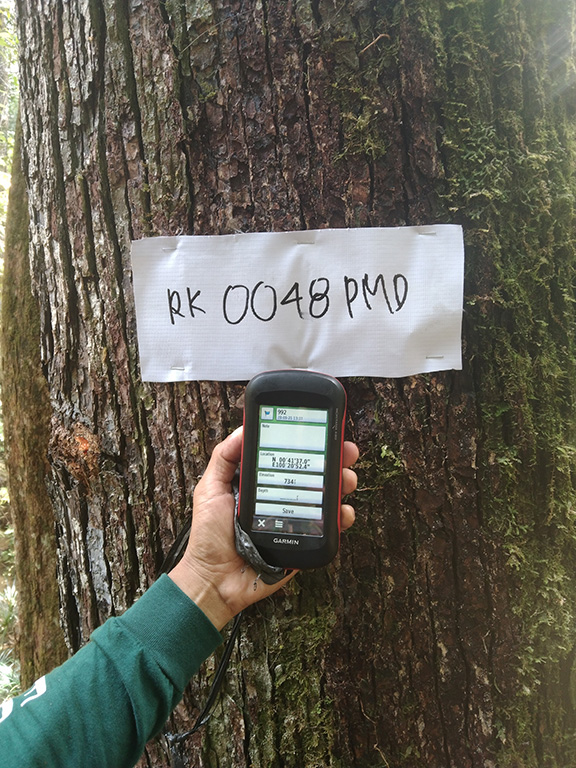 RK 0048 PMD
992
Note
Location
N 00°41'37.0"
E100°20'52.4"
Elevation
Depth
Save
GARMIN